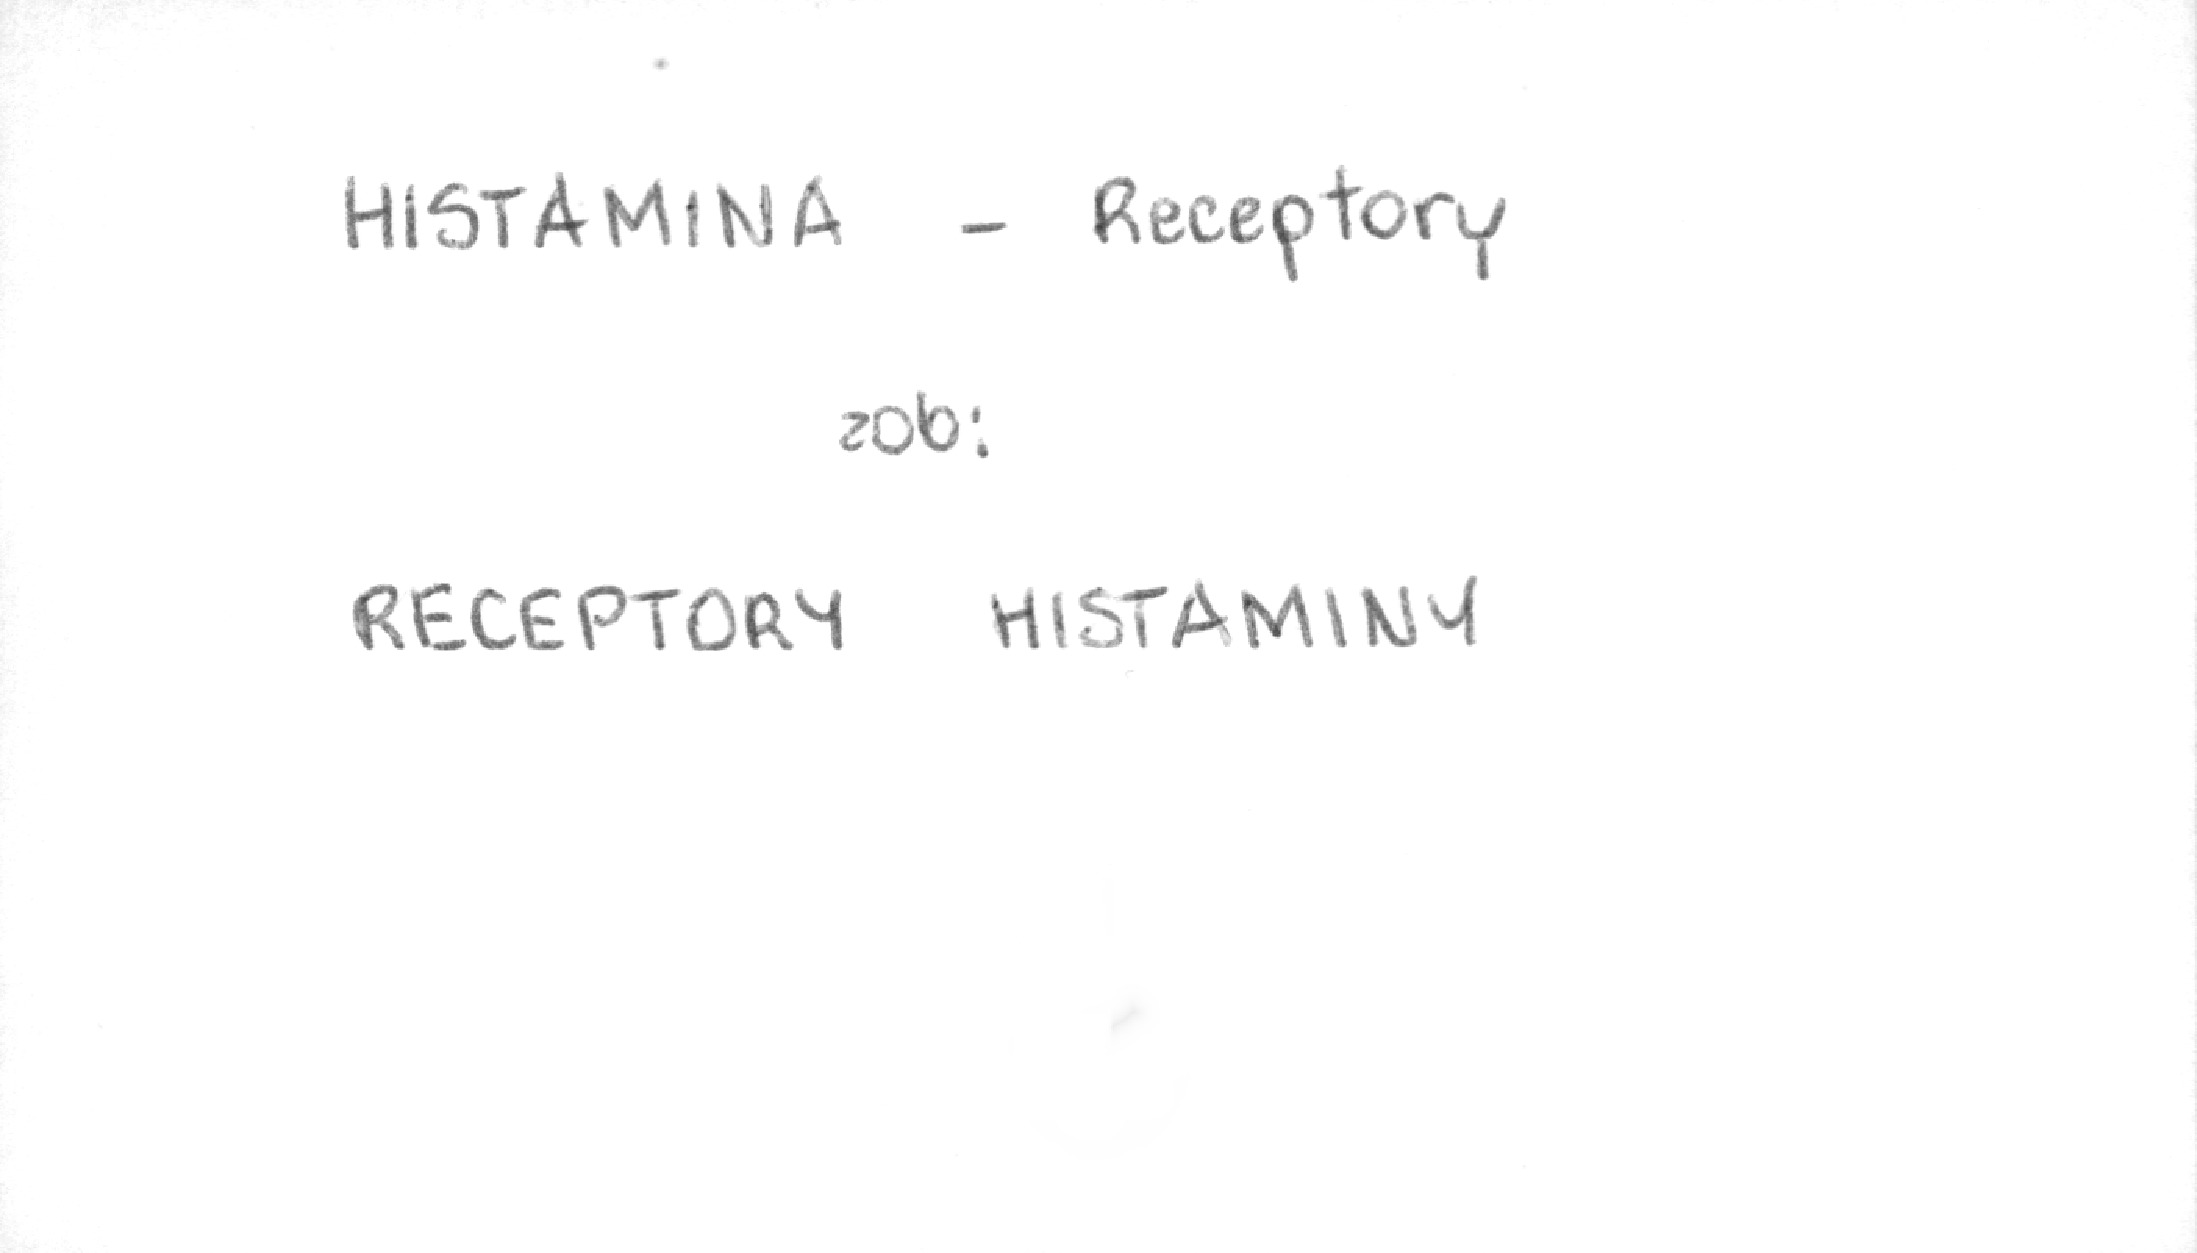 HISTAMINA - Receptory
zob:
RECEPTORY HISTAMINY